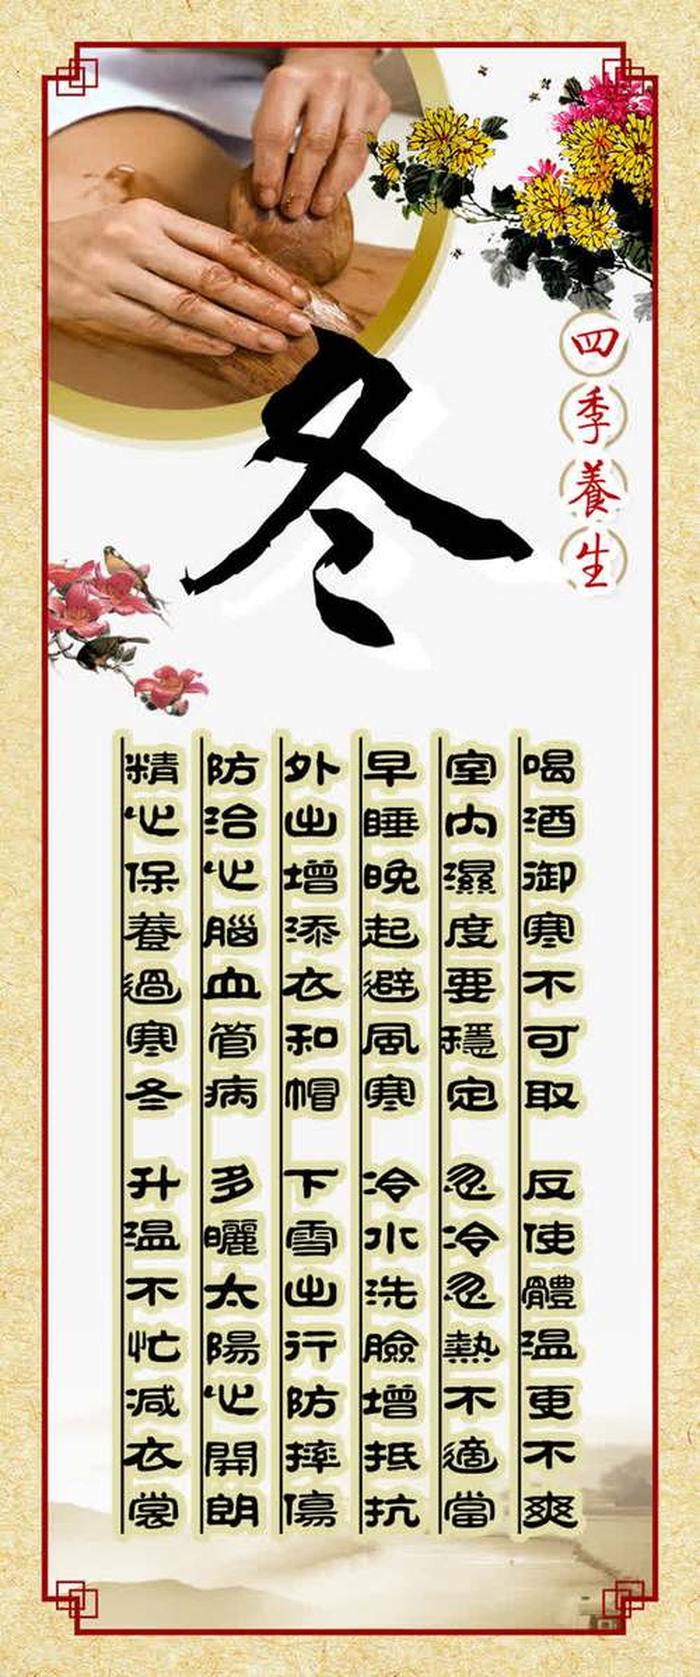 四季養生
冬
喝酒御寒不可取 反使體温更不爽
室内濕度要穩定 忽冷忽熱不適當
早睡晚起避風寒 冷水洗臉增抵抗
外出增添衣和帽 下雪出行防摔傷
防治心腦血管病 多曬太陽心開朗
精心保養過寒冬 升温不忙减衣裳